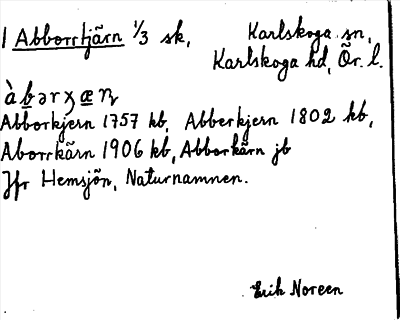 1 Abborrtjärn 1/3 sk, Karlskoga sn,
Karlskoga hd, Ör. l.
àbərχæɳ
Abborkjern 1757 kb, Abberkjern 1802 kb,
Aborrkärn 1906 kb, Abborkärn jb
Jfr Hemsjön, Naturnamnen.
Erik Noreen